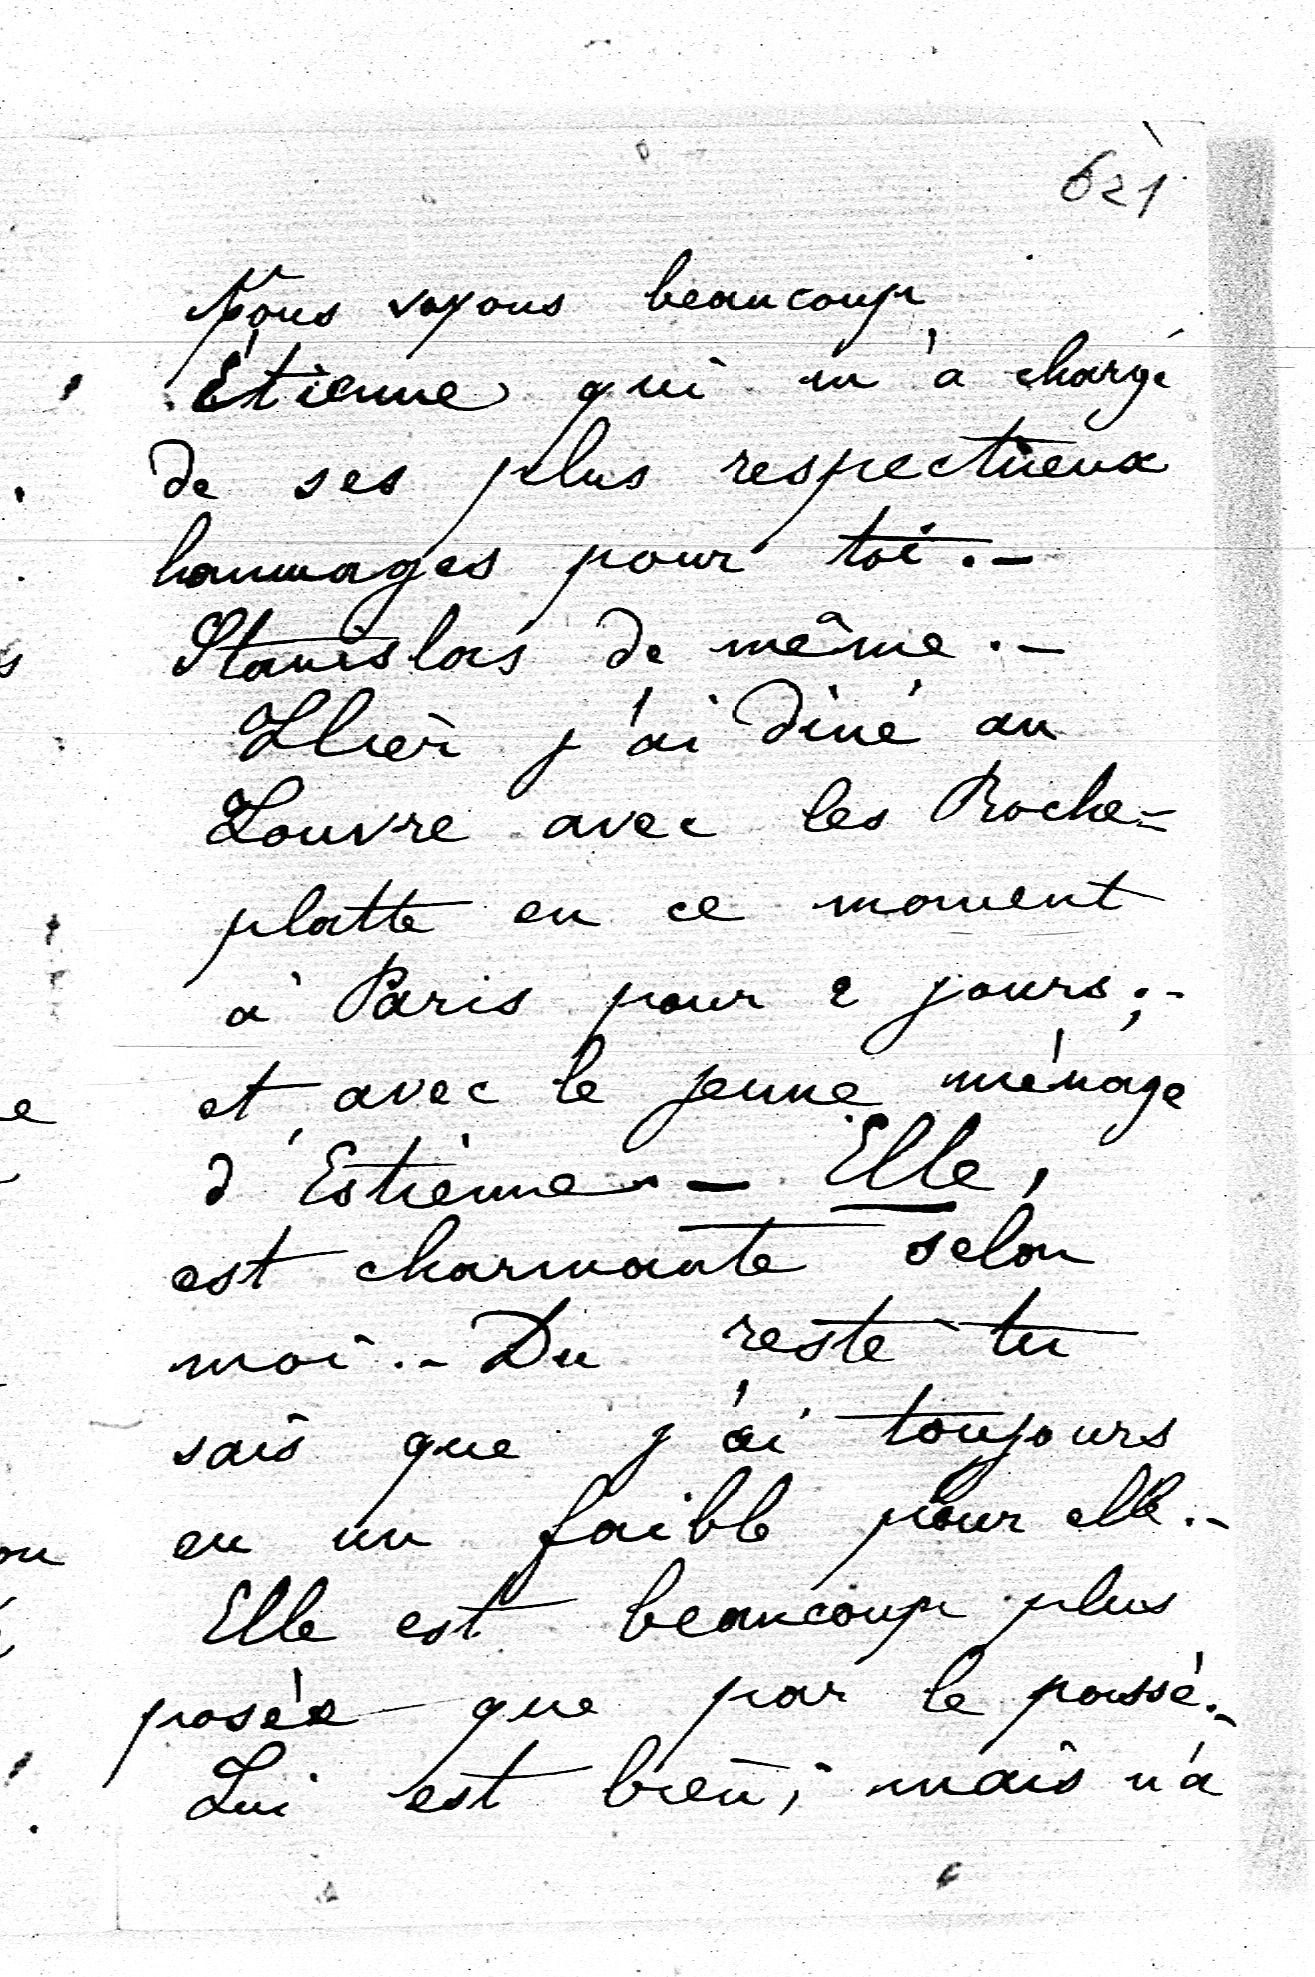 621
Nous voyons beaucoup
Étienne qui m'a chargé
de ses plus respectueux
hommages pour toi.-
Stanislas de même.-
Hier j'ai diné au
Louvre avec les Roche=
platte en ce moment
à Paris pour 2 jours;-
et avec le jeune ménage
d'Estienne.- Elle,
est charmante selon
moi.- Du reste tu
sais que j'ai toujours
eu un faible pour elle.-
Elle est beaucoup plus
posée que par le passé.-
Lui est bien, mais n'a